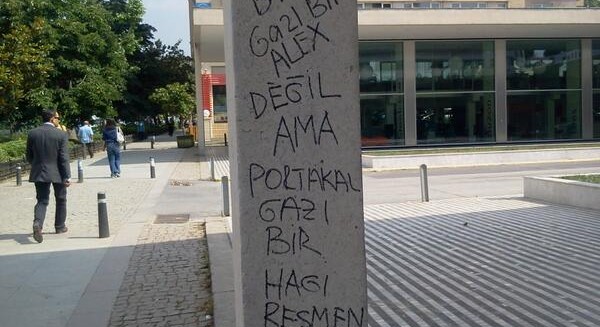 GAZI BİR
ALEX
DEĞİL
AMA
PORTAKAL
GAZI
BIR
HAGI
RESMEN